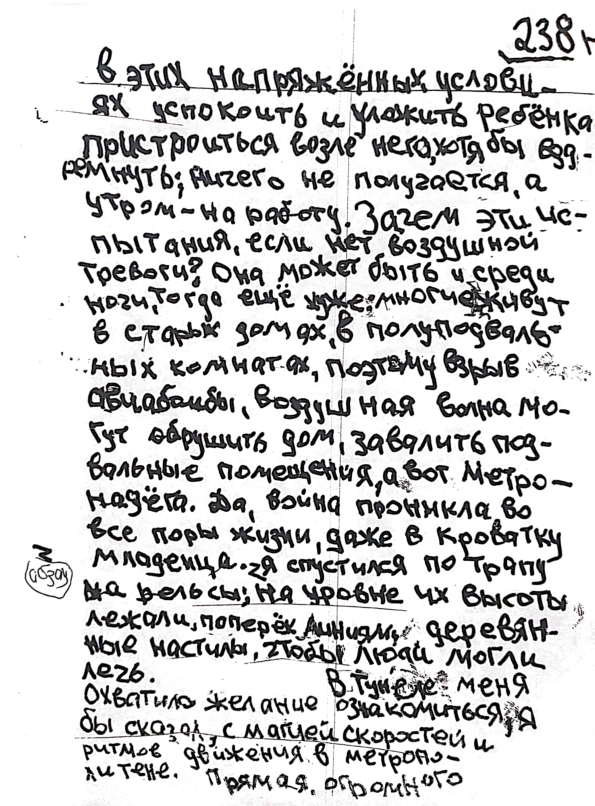 238н
в этих напряжённых услови-
ях успокоить и уложить ребёнка
пристроиться возле него, хотя бы взд-
ремнуть; ничего не получается, а
утром – на работу. Зачем эти ис-
пытания, если нет воздушной
тревоги? Она может быть и среди
ночи, тогда ещё хуже: многие живут
в старых домах, в полуподваль-
ных комнатах, поэтому взрыв
авиабомбы, воздушная волна мо-
гут обрушить дом, завалить под-
вальные помещения, а вот метро –
надёга. Да, война проникла во
все поры жизни, даже в кроватку
младенца. Z я спустился по трапу
абзац
на рельсы; на уровне их высоты
лежали, поперёк линиям, деревян-
ные настилы, чтобы люди могли
лечь.
В тунеле меня
охватило желание ознакомиться, я
бы сказал, с магией скоростей и
ритмов движения в метропо-
литене. Прямая, огромного